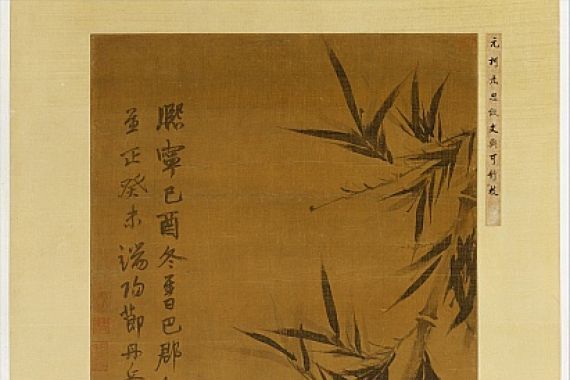 元柯九思倣文與可竹枝
熈寧己酉冬至日巴郡
至正癸未端陽節丹丘